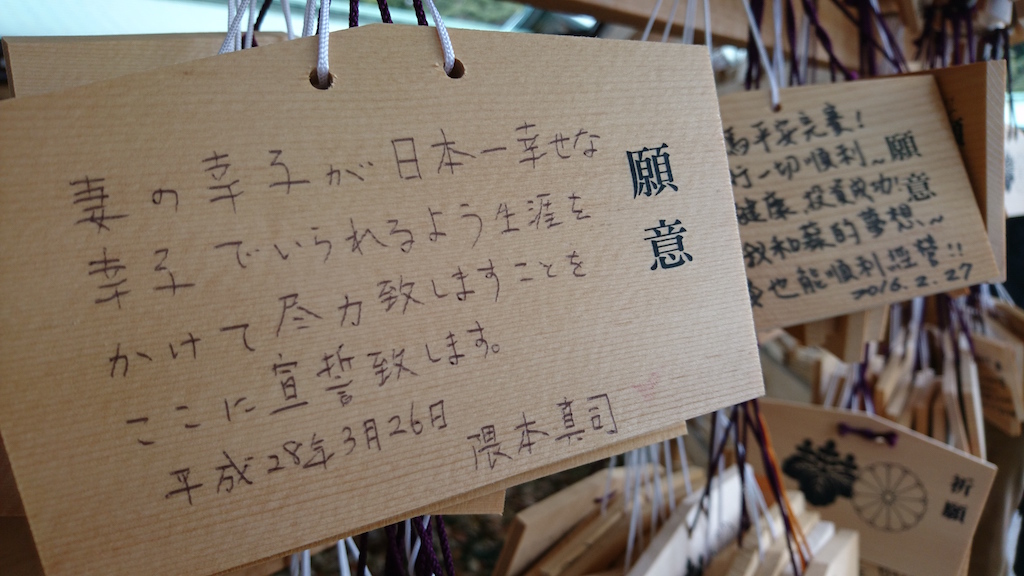 願意
妻の幸子が日本一幸せな
幸子でいられるよう生涯を
かけて尽力致しますことを
ここに宣誓致します。
平成28年3月26日
隈本真司
願意
馬平安完賽!
行一切順利~
健康、投資成功!
我和森的夢想~
也能順利經營!!
2016.2.27
祈願